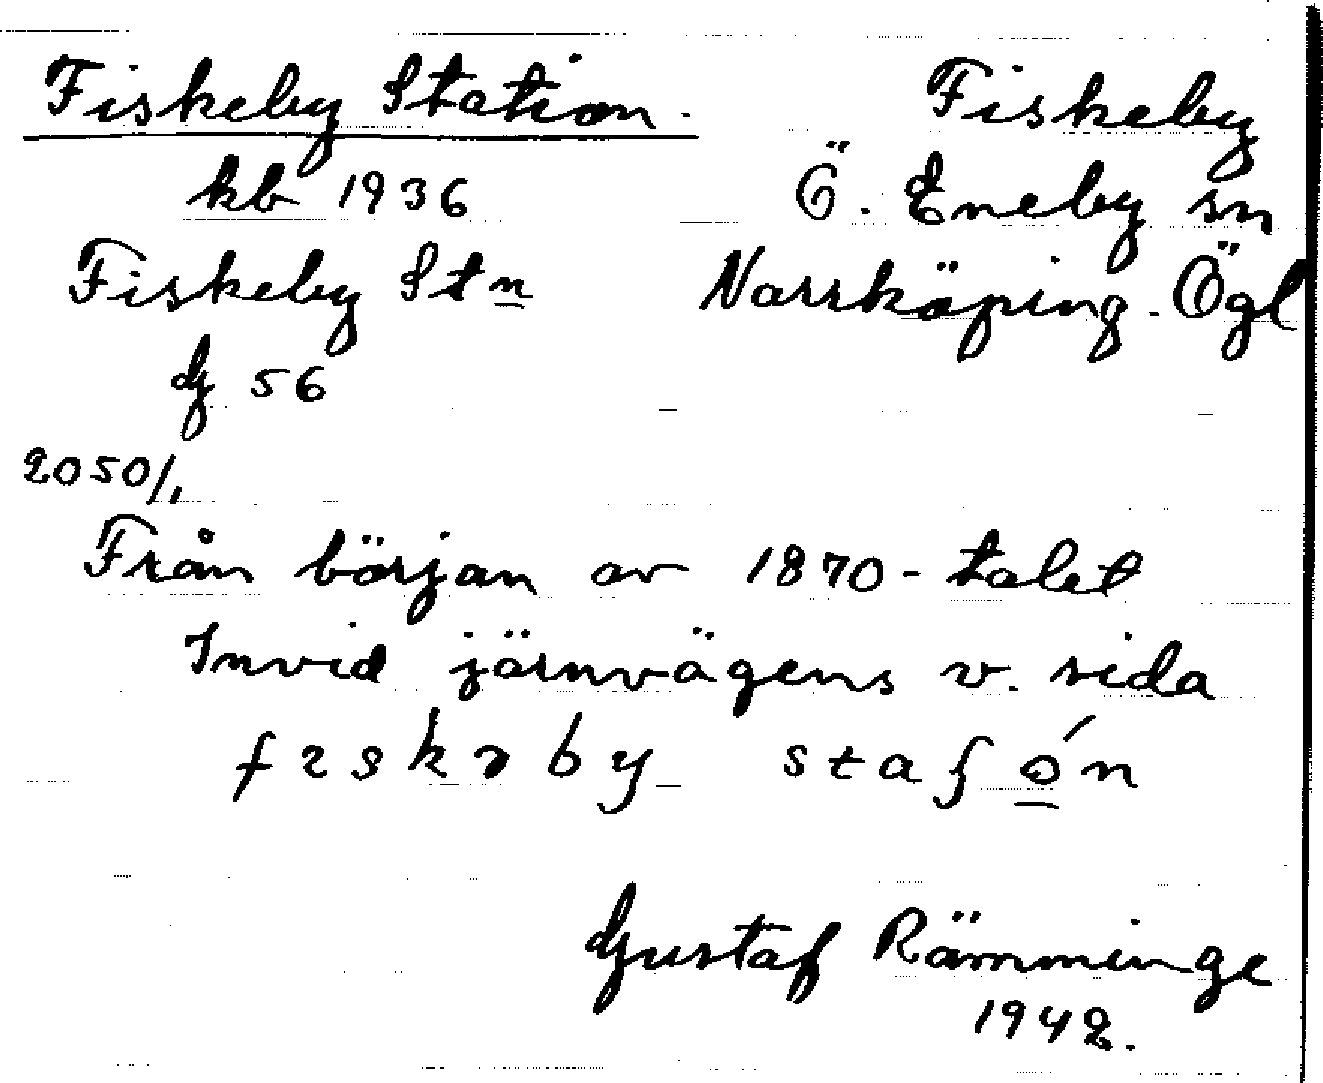 Fiskeby Station.
kb 1936
Fiskeby Stn
G 56
2050/1
Fiskeby
Ö. Eneby sn
Norrköping. Ögl
Från början av 1870-talet
Invid järnvägens v. sida
Gustaf Rämminge
1942.